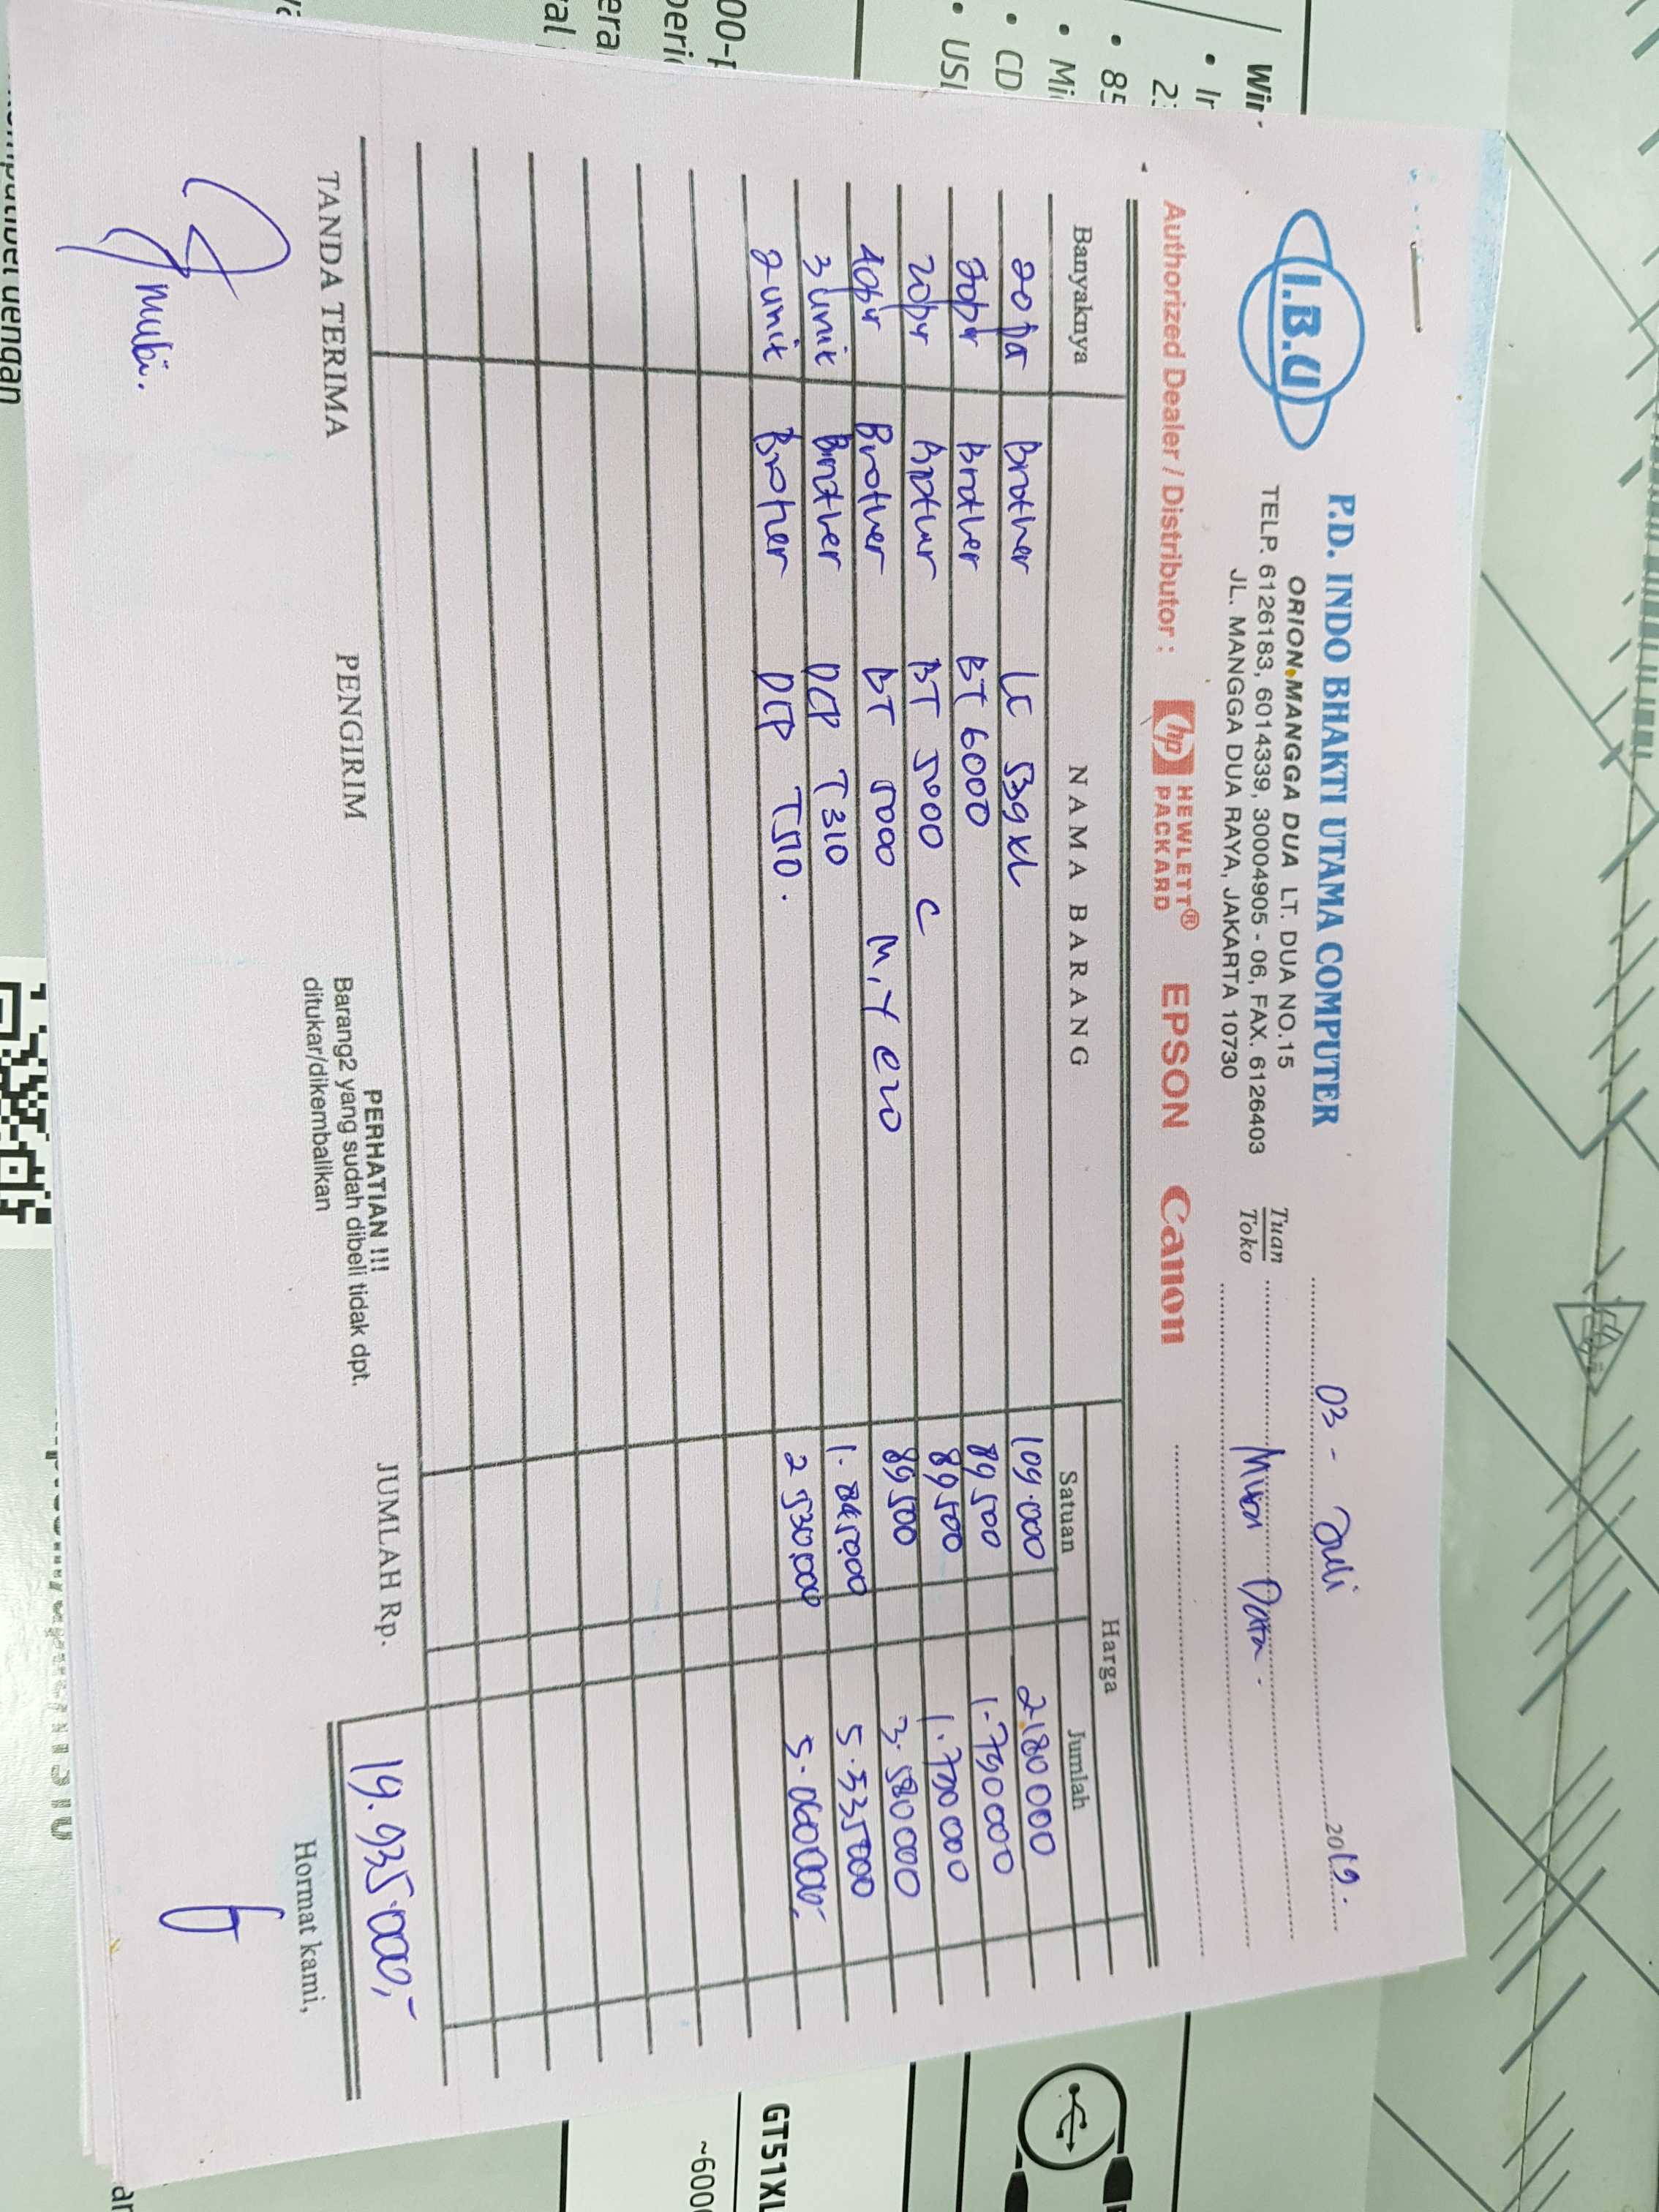 I.B.U
P.D. INDO BHAKTI UTAMA COMPUTER
ORION MANGGA DUA LT. DUA NO.15
TELP. 6126183, 6014339, 30004905 - 06, FAX. 6126403
JL. MANGGA DUA RAYA, JAKARTA 10730
03 - Juli 2019.
Tuan
Toko
Data.
Authorized Dealer / Distributor : hp HEWLETT® PACKARD EPSON Canon
Banyaknya NAMA BARANG Harga
Satuan Jumlah
20 Brother LC 539 XL 109.000 2.180 000
20pr Brother BT 6000 89 500 1.790 000
20pr Brother BT 5000 C 89 500 1.790 000
40pr Brother BT 5000 M, Y @20 89 500 3.580 000
3 unit Brother DCP T310 1.845.000 5.535 000
2 unit Brother DCP T510. 2 530.000 5.060 000,-
TANDA TERIMA PENGIRIM
PERHATIAN !!!
Barang2 yang sudah dibeli tidak dpt.
ditukar/dikembalikan
JUMLAH Rp. 19.935.000,-
Hormat kami,
Win
CD
GT51XL
~600